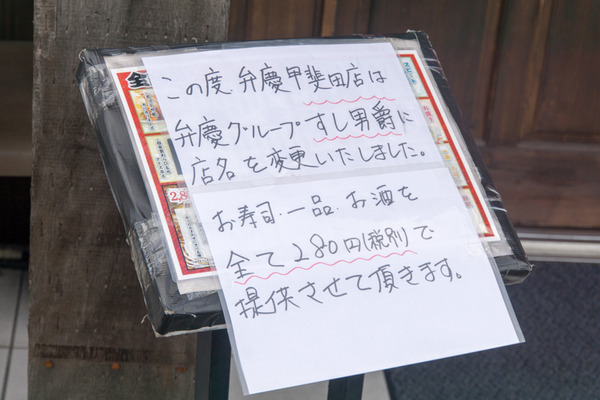 この度弁慶甲斐田店は
弁慶グループすし男爵に
店名を変更いたしました。
お寿司・一品・お酒を
全て280円(税別)で
提供させて頂きます。
全
2,8